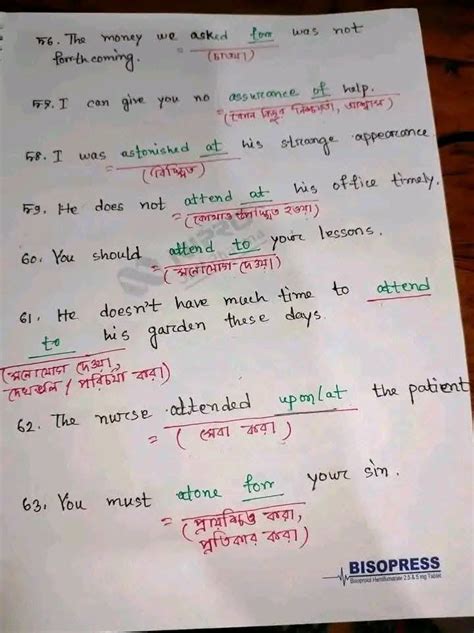 ৫৬. The money we asked for was not
(চাওয়া)
forthcoming.
৫৭. I can give you no assurance of help.
(কোন কিছুর নিশ্চয়তা, আশ্বাস)
৫৮. I was astonished at his strange appearance
= (বিস্মিত)
৫৯. He does not attend at his office timely.
= (কোথাও উপস্থিত হওয়া)
60. You should attend to your lessons.
= (মনোযোগ দেওয়া)
61. He doesn't have much time to attend
to his garden these days.
(মনোযোগ দেওয়া,
দেখাশুনা / পরিচর্যা করা)
62. The nurse attended upon/at the patient
= (সেবা করা)
63. You must atone for your sin.
= (প্রায়শ্চিত্ত করা,
প্রতিকার করা)
BISOPRESS
Bisoprolol Hemifumarate 2.5 & 5 mg Tablet